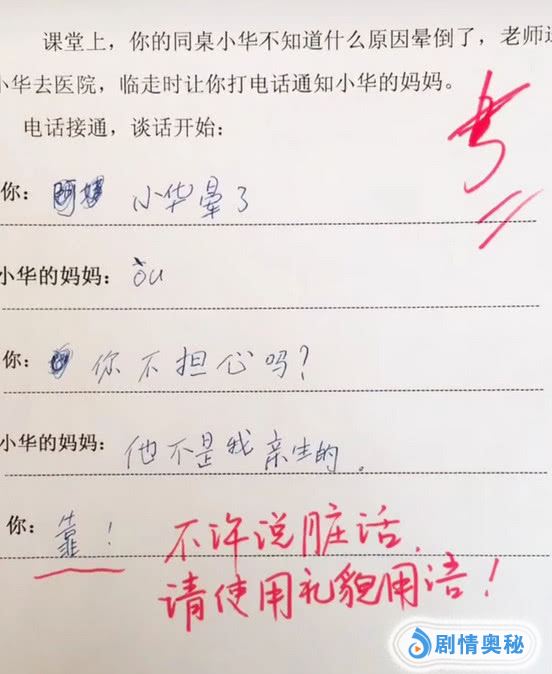 课堂上，你的同桌小华不知道什么原因晕倒了，老师送
小华去医院，临走时让你打电话通知小华的妈妈。
电话接通，谈话开始：
你： 小华晕了
小华的妈妈：òu
你： 你不担心吗？
小华的妈妈：他不是我亲生的。
你：靠！
不许说脏话，
请使用礼貌用语！
剧情奥秘